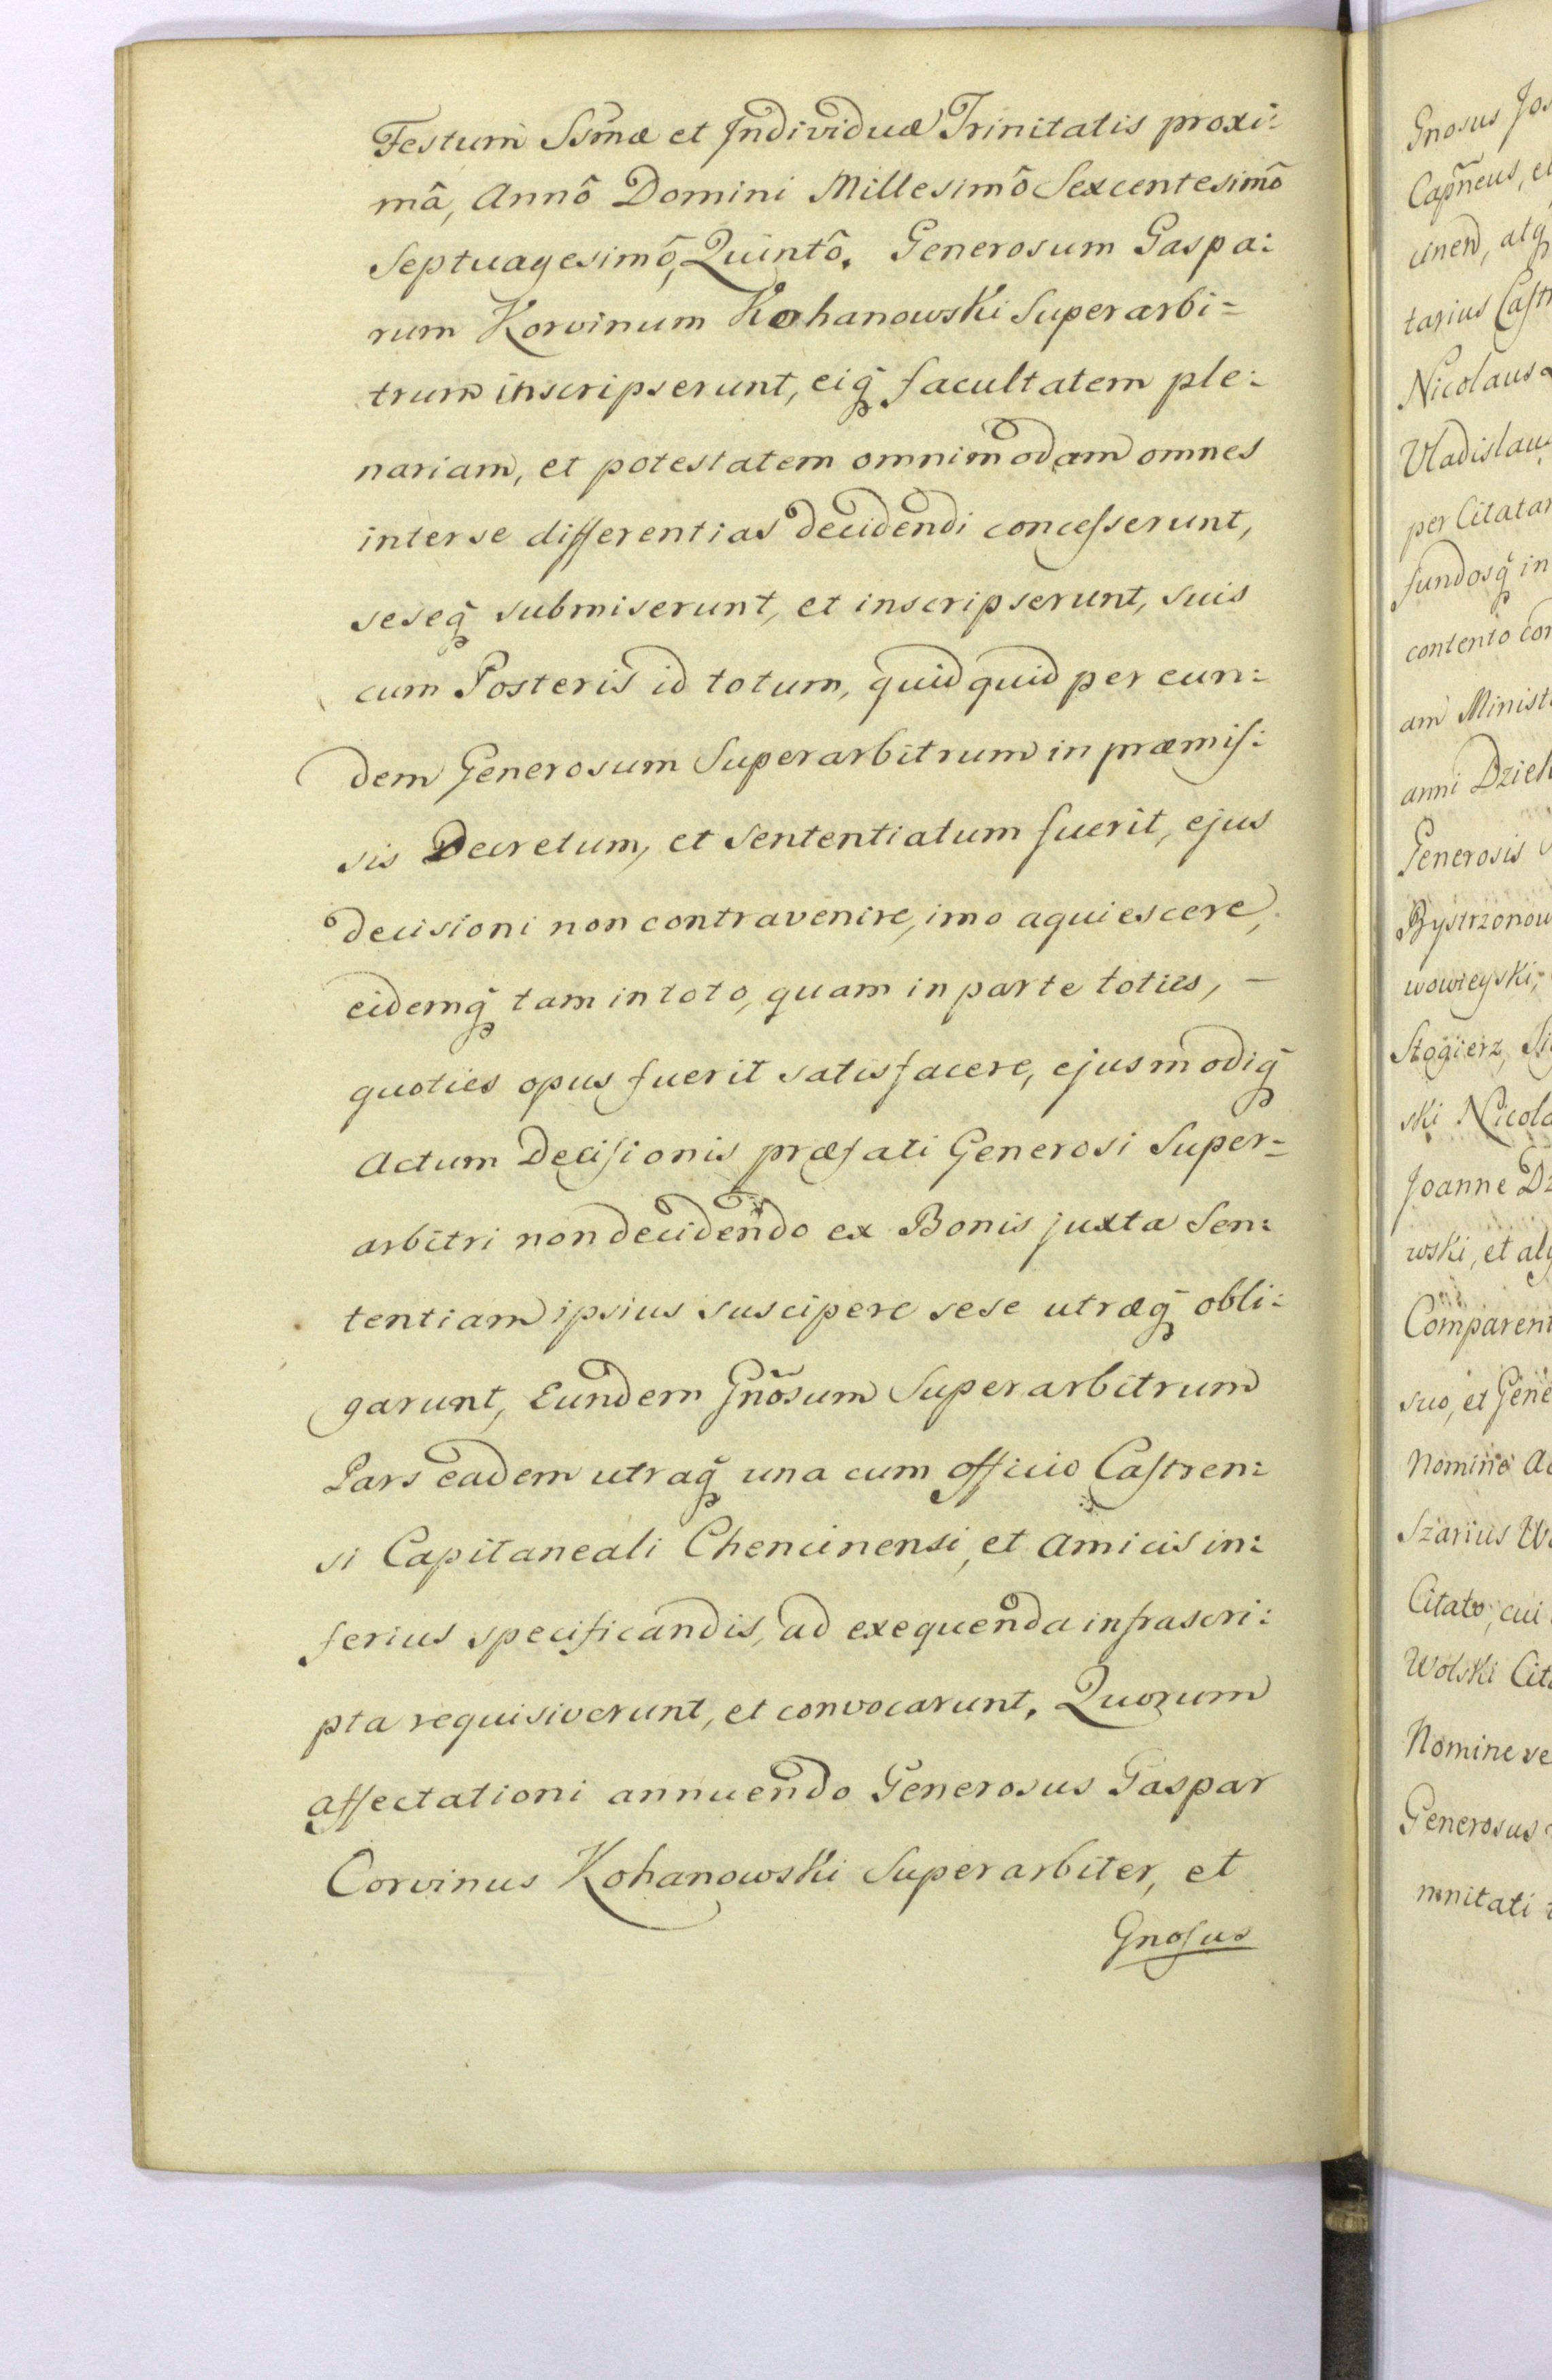 Festum Ssmæ et Individuæ Trinitatis proxi:
mâ, Annô Domini Millesimô Sexcentesimô
Septuagesimô, Quintô. Generosum Gaspa:
rum Korvinum Kohanowski Superarbi=
trum inscripserunt, eiq̃ facultatem ple:
nariam, et potestatem omnimodam omnes
inter se differentias decidendi conceſserunt,
seseq̃ submiserunt, et inscripserunt, suis
cum Posteris id totum, quidquid per eun:
dem Generosum Superarbitrum in præmiſ:
sis Decretum, et Sententiatum fuerit, ejus
decisioni non contravenire, imo aquiescere,
eidemq̃ tam in toto, quam in parte toties, —
quoties opus fuerit satisfacere, ejusmodiq̃
Actum Deciſionis præfati Generosi Super=
arbitri non decidendo ex Bonis juxta Sen:
tentiam ipsius suscipere sese utræq̃ obli:
garunt, Eundem Gnõsum Superarbitrum
Pars eadem utraq̃ una cum officio Caſtren:
si Capitaneali Chencinensi, et Amicis in:
ferius specificandis, ad exequenda infrascri:
pta requisiverunt, et convocarunt. Quorum
affectationi annuendo Generosus Gaspar
Corvinus Kohanowski Superarbiter, et
Gnoſus
Gnosus Jos
Capñeus, et
cinen, atq̃
tarius Caſtr
Nicolaus
Vladislau
per Citatar
fundosq̃ in
contento con
am Minist
anni Dziek
Generosis
Bystrzonow
wowieyski,
Stogierz,
ski Nicola
Joanne Dz
wski, et
Comparent
suo, et Gene
Nomine
Szarius
Citato, cui
Wolski Cit
Nomine ve
Generosus
mnitati